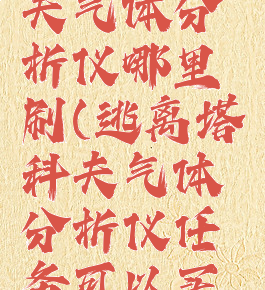 夫气体分
析仪哪里
刷(逃离塔
科夫气体
分析仪任
务可以买